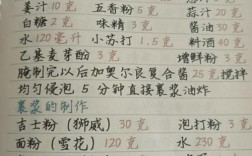 姜汁 10 克 五香粉 5 克 蒜汁 20 克
白糖 2 克 味精 3 克 酱油 30 克
水 120 毫升 小苏打 1.5 克 料酒 40 克
乙基麦芽酚 3 克 增鲜粉 3 克
腌制完以后加奥尔良复合酱 25 克 搅拌
均匀浸泡 5 分钟直接裹浆油炸
裹浆的制作
吉士粉 (狮威) 30 克 泡打粉 3 克
面粉 (雪花) 120 克 水 230 克